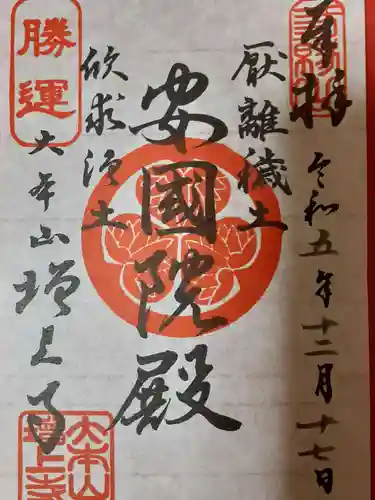 奉拝
令和五年十二月十七日
厭離穢土
安國院殿
欣求浄土
勝運
大本山増上寺
大本山
増上寺